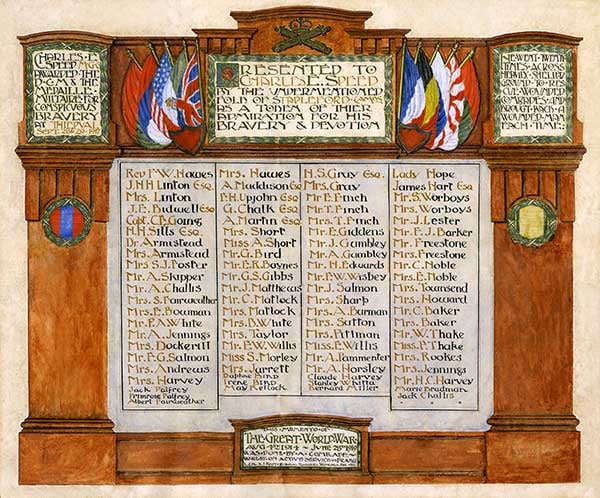 CHARLES·E·
SPEED WAS
AWARDED THE
D·C·M & THE
MEDAILLE
MILITAIRE FOR
CONSPICVOVS
BRAVERY
AT THIEPVAL
PRESENTED TO
CHARLES·E·SPEED
BY THE VNDERMENTIONED
FOLK OF STAPLEFORD CAMBS
AS A TOKEN OF THEIR
ADMIRATION FOR HIS
BRAVERY & DEVOTION
HE WENT TWENTY
TIMES ACROSS
HEAVILY SHELLED
GROVND TO RES-
CVE WOVNDED
COMRADES AND
BROVGHT BACK A
WOVNDED MAN
EACH TIME:
Rev F W. Hawes
J.H.H Linton Esq.
Mrs. Linton
J.E. Bidwell Esq.
Col. C.B. Going
H.H. Sills Esq.
Dr. Armistead
Mrs. Armistead
Mrs S.J. Foster
Mr. A. Skipper
Mr. A. Challis
Mrs. S. Fairweather
Mrs. E. Bowman
Mr. F.A. White
Mr. A. Jennings
Mrs. Dockerill
Mr. F.G. Salmon
Mrs. Andrews
Mrs. Harvey
Jack Palfrey
Primrose Palfrey
Albert Fairweather
Mrs. Hawes
A. Maddison Esq
F.H. Upjohn Esq
G. Chalk Esq
A. Martin Esq
Mrs. Short
Miss A. Short
Mr. G. Bird
Mr. E.R. Baynes
Mr. G.S. Gibbs
Mr. J. Matthews
Mr. C. Matlock
Mrs. Matlock
Mrs. B. White
Mrs. Taylor
Mr. F.W. Willis
Miss S. Morley
Mrs. Jarrett
Daphne Bird
Irene Bird
May Kellock
H.S. Gray Esq.
Mrs. Gray
Mr. E. Finch
Mr. T. Finch
Mrs. T. Finch
Mr. E. Giddens
Mr. J. Gambley
Mr. A. Gambley
Mr. H. Edwards
Mr. P.W. Wisbey
Mr. J. Salmon
Mrs. Sharp
Mrs. A. Burman
Mrs. Sutton
Mrs. Pittman
Miss. E. Willis
Mr. A. Pammenter
Mr. A. Horsley
Claude Harvey
Stanley Whitta
Bernard Miller
Lady Hope
James Hart Esq.
Mr. S. Worboys
Mrs. Worboys
Mr. J. Lester
Mr. F.J. Barker
Mr. Freestone
Mrs. Freestone
Mr. C. Noble
Mr. E. Noble
Mrs. Townsend
Mrs. Howard
Mr. C. Baker
Mrs. Baker
Mr. W. Thake
Miss P. Thake
Mrs. Rookes
Mrs. Jennings
Mr. H.C. Harvey
Marie Bradman
Jack Challis
THIS MEMENTO OF
THE GREAT WORLD WAR
AVG 4TH 1914 – JVNE 28TH 1919
WAS DONE BY A COMRADE
WHILST ON ACTIVE SERVICE IN FRANCE